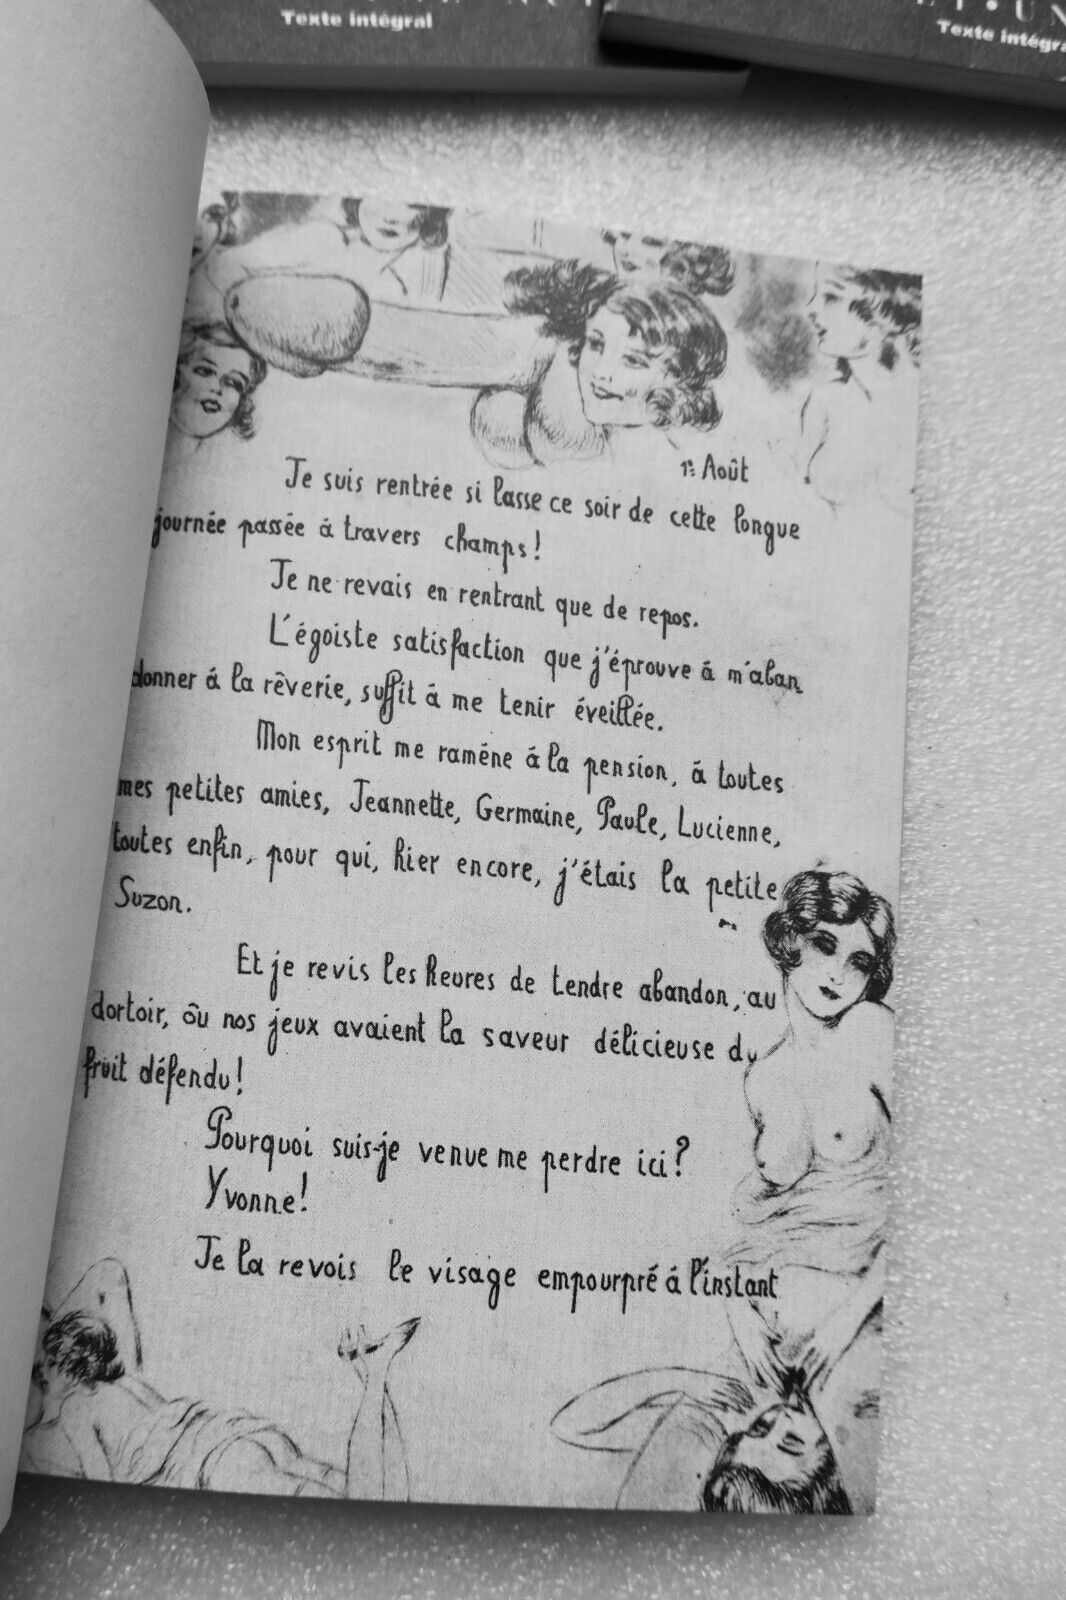 Texte intégral
Texte intégra
1er Août
Je suis rentrée si lasse ce soir de cette longue
journée passée á travers champs!
Je ne revais en rentrant que de repos.
L'égoiste satisfaction que j'éprouve á m'aban
donner á la rêverie, suffit á me tenir éveillée.
Mon esprit me raméne á la pension, á toutes
mes petites amies, Jeannette, Germaine, Paule, Lucienne,
toutes enfin, pour qui, hier encore, j'étais la petite
Suzon.
Et je revis les heures de tendre abandon, au
dortoir, ôu nos jeux avaient la saveur délicieuse du
fruit défendu!
Pourquoi suis-je venue me perdre ici?
Yvonne!
Je la revois le visage empourpré á l'instant